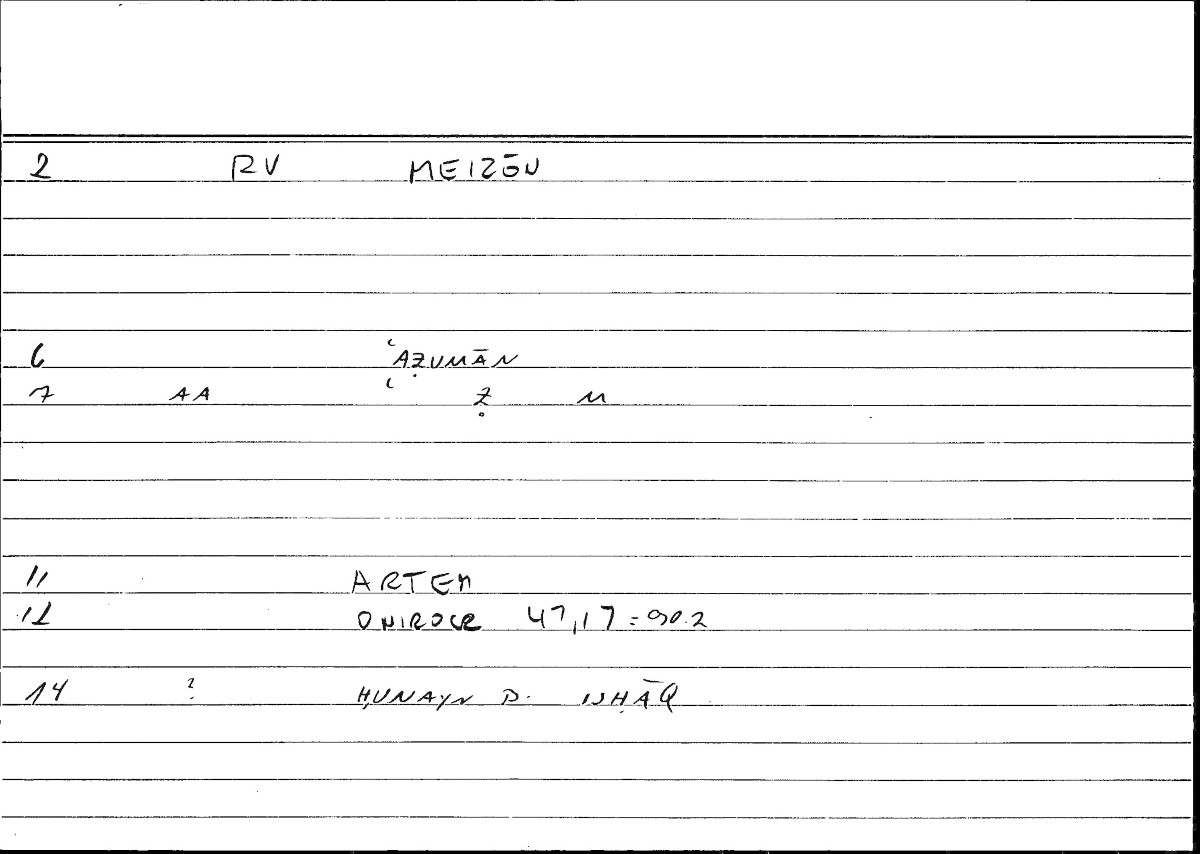 2 RV MEIZŌN
6 ʿAẒUMĀN
7 AA ʿ Ẓ M
11 ARTEM
12 ONIROCR 47,17 = 90.2
14 ? ḤUNAYN B. ISḤĀQ